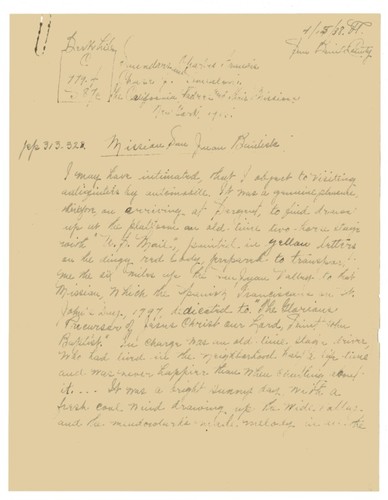 4/15/38. FF.
San Benito County
Saunders, Charles Francis
and
Chase, J. Smeaton
The California Padres and their Missions
New York, 1915
pp 313-328
Mission San Juan Bautista
I may have intimated, that I object to visiting
antiquities by automobile. It was a genuine pleasure,
therefore on arriving at Sargent, to find drawn
up at the platform an old-time two-horse stage
with "U.S. Mail", painted in yellow letters
on the dingy red body, prepared to transfer
me the six miles up the San Juan Valley to that
Mission, which the Spanish Franciscans on St.
John's Day, 1797, dedicated to "The Glorious
Precursor of Jesus Christ our Lord, Saint John
Baptist." In charge was an old time stage driver,
who had lived in the neighborhood half a life time
and was never happier than when chatting about
it.... It was a bright summer day with a
fresh cool wind drawing up the wide valley
and the meadowlarks made melody in all the